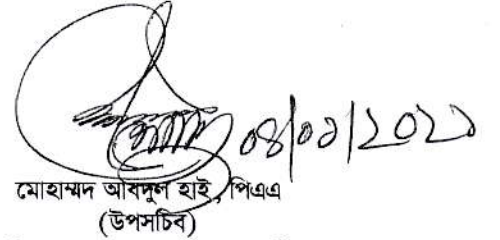 ০৪/০১/২০২১
মোহাম্মদ আবদুল হাই, পিএএ
(উপসচিব)